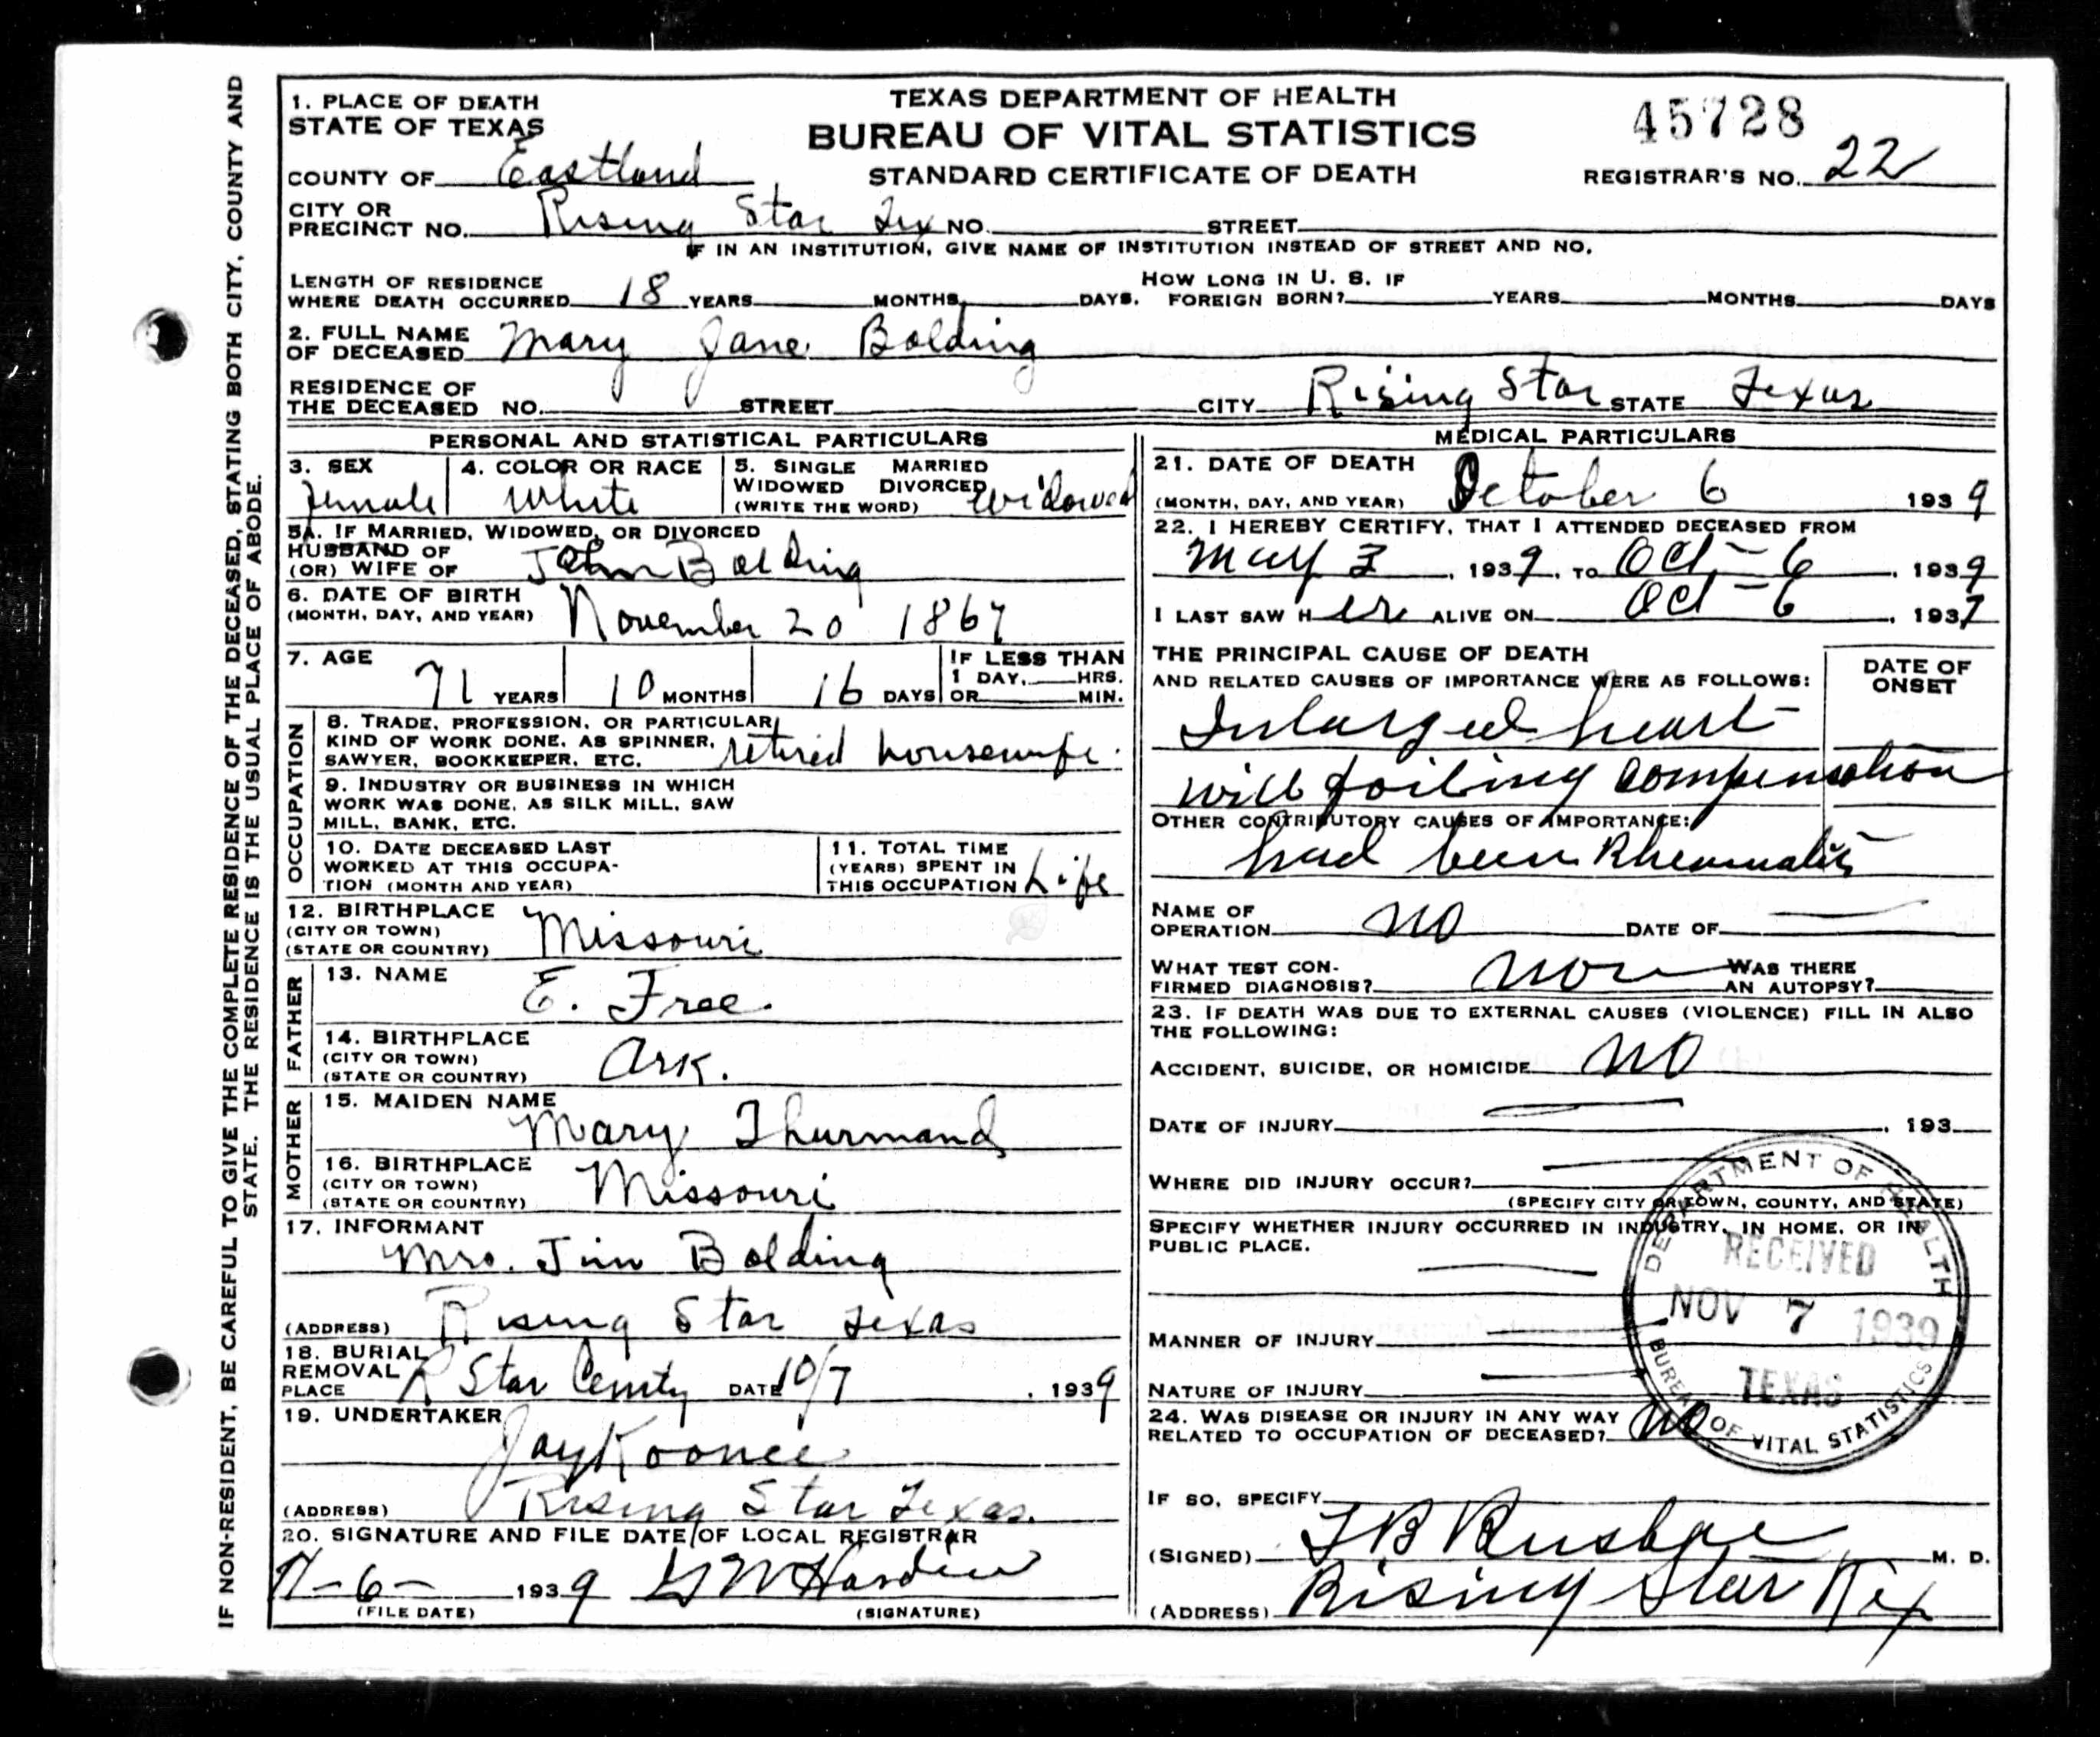 TEXAS DEPARTMENT OF HEALTH
BUREAU OF VITAL STATISTICS
STANDARD CERTIFICATE OF DEATH
45728
REGISTRAR'S NO. 22
1. PLACE OF DEATH
STATE OF TEXAS
COUNTY OF Eastland
CITY OR
PRECINCT NO. Rising Star Tex NO. STREET
IF IN AN INSTITUTION, GIVE NAME OF INSTITUTION INSTEAD OF STREET AND NO.
LENGTH OF RESIDENCE
WHERE DEATH OCCURRED 18 YEARS MONTHS DAYS. HOW LONG IN U. S. IF
FOREIGN BORN? YEARS MONTHS DAYS
2. FULL NAME
OF DECEASED Mary Jane Bolding
RESIDENCE OF
THE DECEASED NO. STREET CITY Rising Star STATE Texas
PERSONAL AND STATISTICAL PARTICULARS
3. SEX
female
4. COLOR OR RACE
White
5. SINGLE MARRIED
WIDOWED DIVORCED
(WRITE THE WORD) widowed
5A. IF MARRIED, WIDOWED, OR DIVORCED
HUSBAND OF
(OR) WIFE OF John Bolding
6. DATE OF BIRTH
(MONTH, DAY, AND YEAR) November 20 1867
7. AGE
71 YEARS 10 MONTHS 16 DAYS
IF LESS THAN
1 DAY, HRS.
OR MIN.
OCCUPATION
8. TRADE, PROFESSION, OR PARTICULAR
KIND OF WORK DONE, AS SPINNER,
SAWYER, BOOKKEEPER, ETC. retired housewife.
9. INDUSTRY OR BUSINESS IN WHICH
WORK WAS DONE, AS SILK MILL, SAW
MILL, BANK, ETC.
10. DATE DECEASED LAST
WORKED AT THIS OCCUPA-
TION (MONTH AND YEAR)
11. TOTAL TIME
(YEARS) SPENT IN
THIS OCCUPATION Life
12. BIRTHPLACE
(CITY OR TOWN)
(STATE OR COUNTRY) Missouri
FATHER
13. NAME
E. Free.
14. BIRTHPLACE
(CITY OR TOWN)
(STATE OR COUNTRY) Ark.
MOTHER
15. MAIDEN NAME
Mary Thurmand
16. BIRTHPLACE
(CITY OR TOWN)
(STATE OR COUNTRY) Missouri
17. INFORMANT
Mrs. Jim Bolding
(ADDRESS) Rising Star Texas
18. BURIAL
REMOVAL
PLACE R Star Cemty DATE 10/7, 1939
19. UNDERTAKER
Jay Koonce
(ADDRESS) Rising Star Texas.
20. SIGNATURE AND FILE DATE OF LOCAL REGISTRAR
11-6- 1939
(FILE DATE) (SIGNATURE)
MEDICAL PARTICULARS
21. DATE OF DEATH
(MONTH, DAY, AND YEAR) October 6 1939
22. I HEREBY CERTIFY, THAT I ATTENDED DECEASED FROM
May 3, 1939, TO Oct-6, 1939
I LAST SAW Her ALIVE ON Oct-6, 1937
THE PRINCIPAL CAUSE OF DEATH
AND RELATED CAUSES OF IMPORTANCE WERE AS FOLLOWS:
DATE OF
ONSET
Inlarged heart
with foiling compensation
OTHER CONTRIBUTORY CAUSES OF IMPORTANCE:
had been Rheumatic
NAME OF
OPERATION no DATE OF
WHAT TEST CON-
FIRMED DIAGNOSIS? non WAS THERE
AN AUTOPSY?
23. IF DEATH WAS DUE TO EXTERNAL CAUSES (VIOLENCE) FILL IN ALSO
THE FOLLOWING:
ACCIDENT, SUICIDE, OR HOMICIDE no
DATE OF INJURY, 193
WHERE DID INJURY OCCUR?
(SPECIFY CITY OR TOWN, COUNTY, AND STATE)
SPECIFY WHETHER INJURY OCCURRED IN INDUSTRY, IN HOME, OR IN
PUBLIC PLACE.
MANNER OF INJURY
NATURE OF INJURY
24. WAS DISEASE OR INJURY IN ANY WAY
RELATED TO OCCUPATION OF DECEASED? no
IF SO, SPECIFY
(SIGNED) M. D.
(ADDRESS) Rising Star Tex
DEPARTMENT OF HEALTH
RECEIVED
NOV 7 1939
TEXAS
BUREAU OF VITAL STATISTICS
IF NON-RESIDENT, BE CAREFUL TO GIVE THE COMPLETE RESIDENCE OF THE DECEASED, STATING BOTH CITY, COUNTY AND
STATE. THE RESIDENCE IS THE USUAL PLACE OF ABODE.